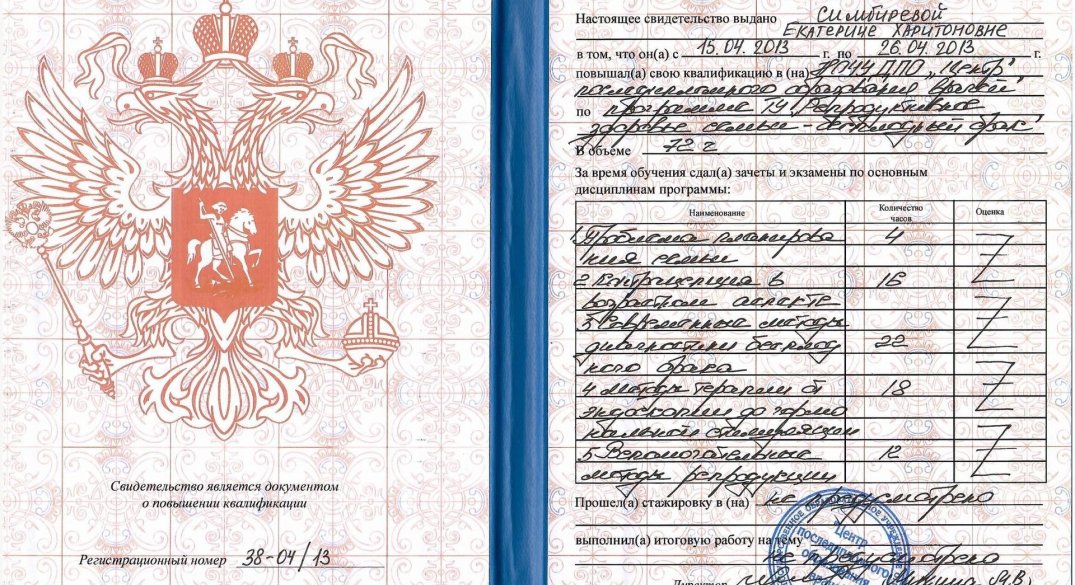 Свидетельство является документом
о повышении квалификации
Регистрационный номер 38-04/13
Настоящее свидетельство выдано Симбиревой
Екатерице Харитоновне
в том, что он(а) с 15.04.2013 г. по 26.04.2013 г.
повышал(а) свою квалификацию в (на) НОЧУ ДПО „Центр
последипломного образования врачей"
по программе ТУ „Репродуктивное
здоровье семьи - бесплодный брак"
В объеме 72 г
За время обучения сдал(а) зачеты и экзамены по основным
дисциплинам программы:
Наименование Количество часов Оценка
1. Проблема планирова 4
ния семьи
2 Контрацепция в 16
возрастном аспекте
3 Современные методы
диагностики бесплод 22
ного брака
4 методы терапии от 18
эндоскопии до гормо
нальной стимуляции
5 Вспомогательные 12
методы репродукции
Прошел(а) стажировку в (на) не предусмотрено
выполнил(а) итоговую работу на тему
не предусмотрено
Директор